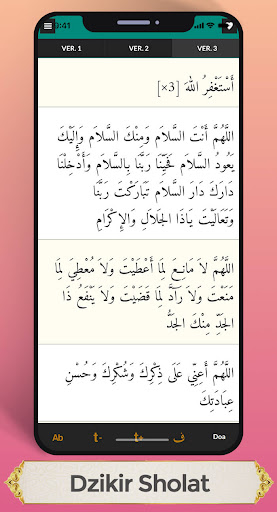 9:41
VER. 1 VER. 2 VER. 3
أَسْتَغْفِرُ اللّٰهَ [×3]
اللَّهُمَّ أَنْتَ السَّلاَم وَمِنْكَ السَّلاَم وَإِلَيْكَ
يَعُودُ السَّلاَم فَحَيِّنَا رَبَّنَا بِالسَّلاَمِ وَأَدْخِلْنَا
دَارَكَ دَارَ السَّلاَم تَبَارَكْتَ رَبَّنَا
وَتَعَالَيْتَ يَاذَا الجَلاَلِ وَالإِكْرَامِ
اللَّهُمَّ لاَ مَانِعَ لِمَا أَعْطَيْتَ وَلاَ مُعْطِيَ لِمَا
مَنَعْتَ وَلاَ رَادَّ لِمَا قَضَيْتَ وَلاَ يَنْفَعُ ذَا
الجَدِّ مِنْكَ الجَدُّ
اللَّهُمَّ أَعِنِّي عَلَى ذِكْرِكَ وَشُكْرِكَ وَحُسْنِ
عِبَادَتِكَ
Ab t- t+ ف Doa
Dzikir Sholat